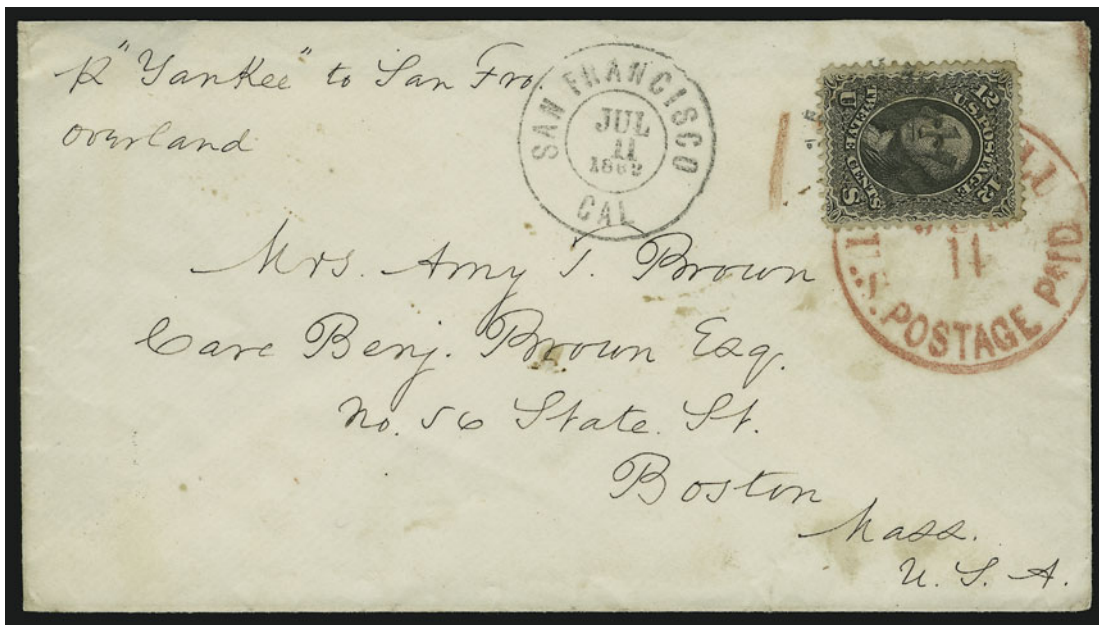 p "Yankee" to San Fro.
overland
SAN FRANCISCO
JUL
11
1862
CAL
U.S. POSTAGE.
12 12
TWELVE CENTS
U S
U.S. POSTAGE PAID
Mrs. Amy T. Brown
Care Benj. Brown Esq.
No. 56 State. St.
Boston
Mass.
U. S. A.